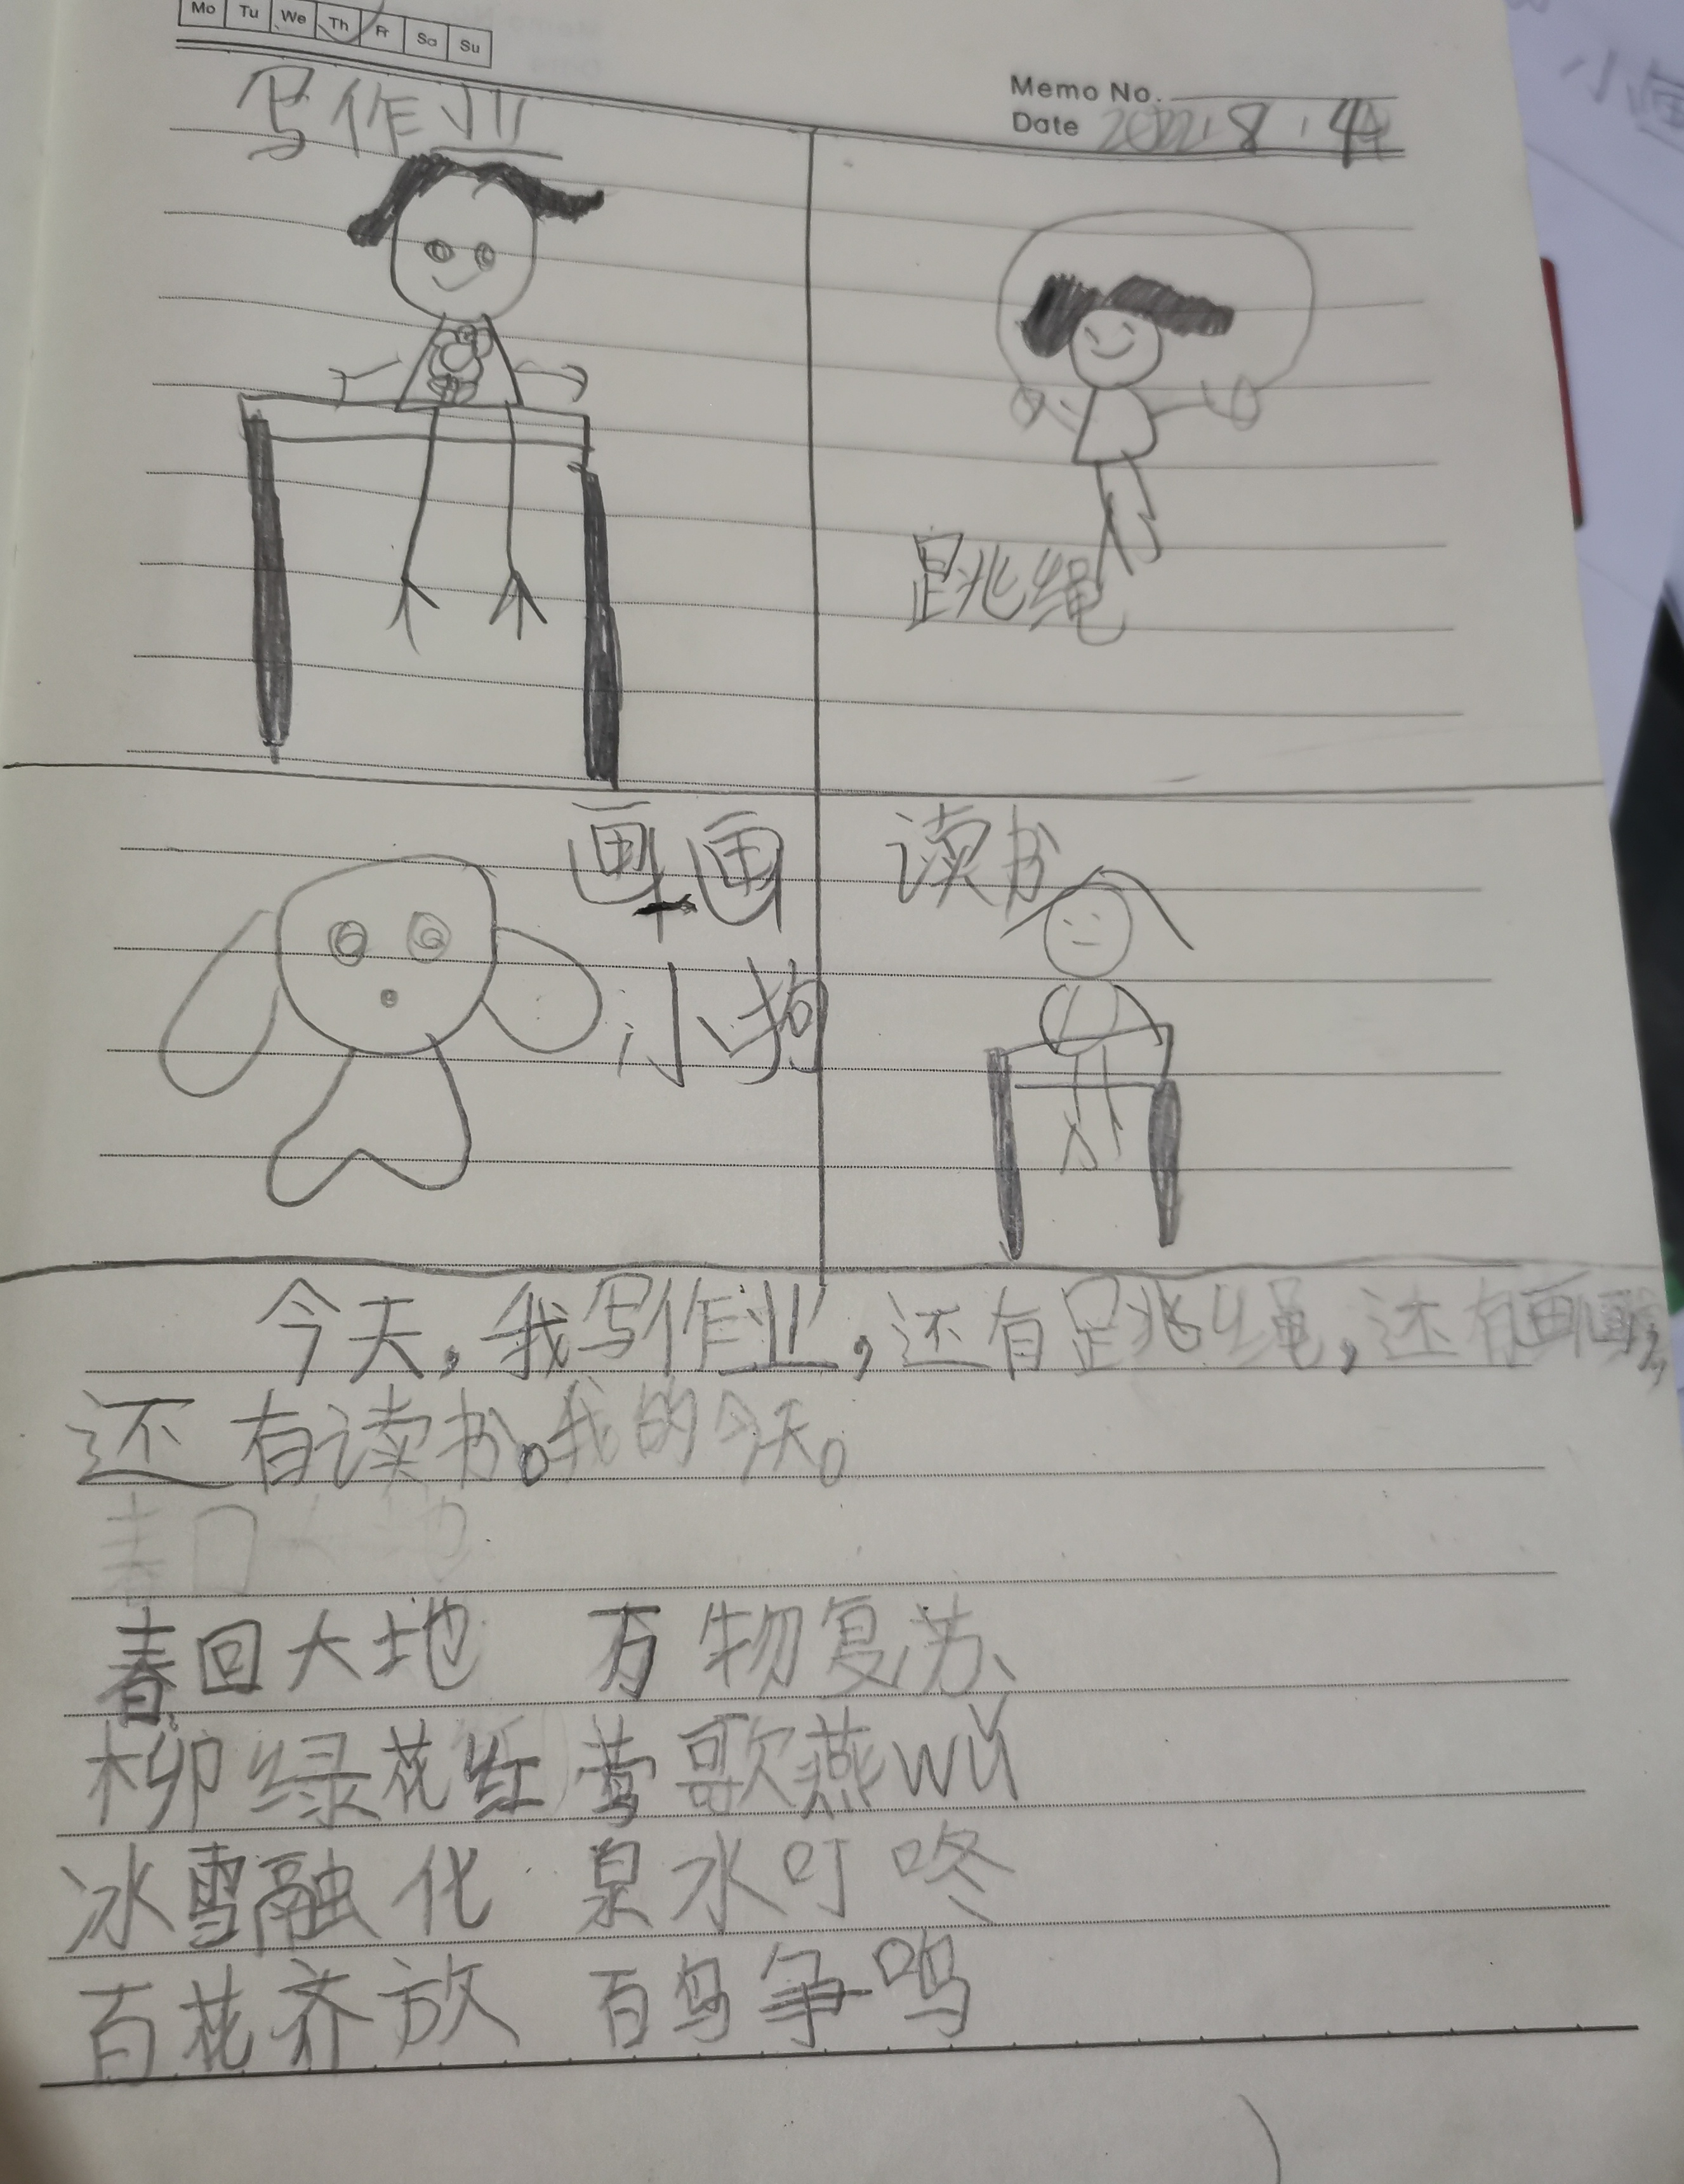 Mo Tu We Th Fr Sa Su
Memo No.
Date 2022.8.4
写作业
跳绳
画画
小狗
读书
今天，我写作业，还有跳绳，还有画画，
还有读书。我的今天。
春回大地 万物复苏、
柳绿花红 莺歌燕wǔ
冰雪融化 泉水叮咚
百花齐放 百鸟争鸣